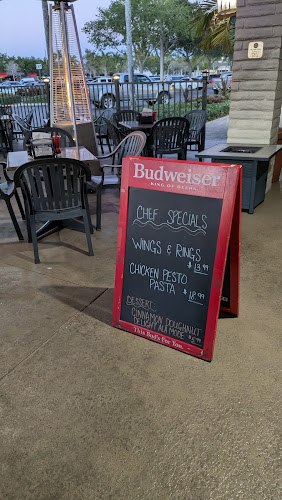 Budweiser
KING OF BEERS
CHEF SPECIALS
WINGS & RINGS
$13.99
CHICKEN PESTO
PASTA $18.99
DESSERT:
CINNAMON DOUGHNUT
DELIGHT ALA MODE $5.99
This Bud's For You.